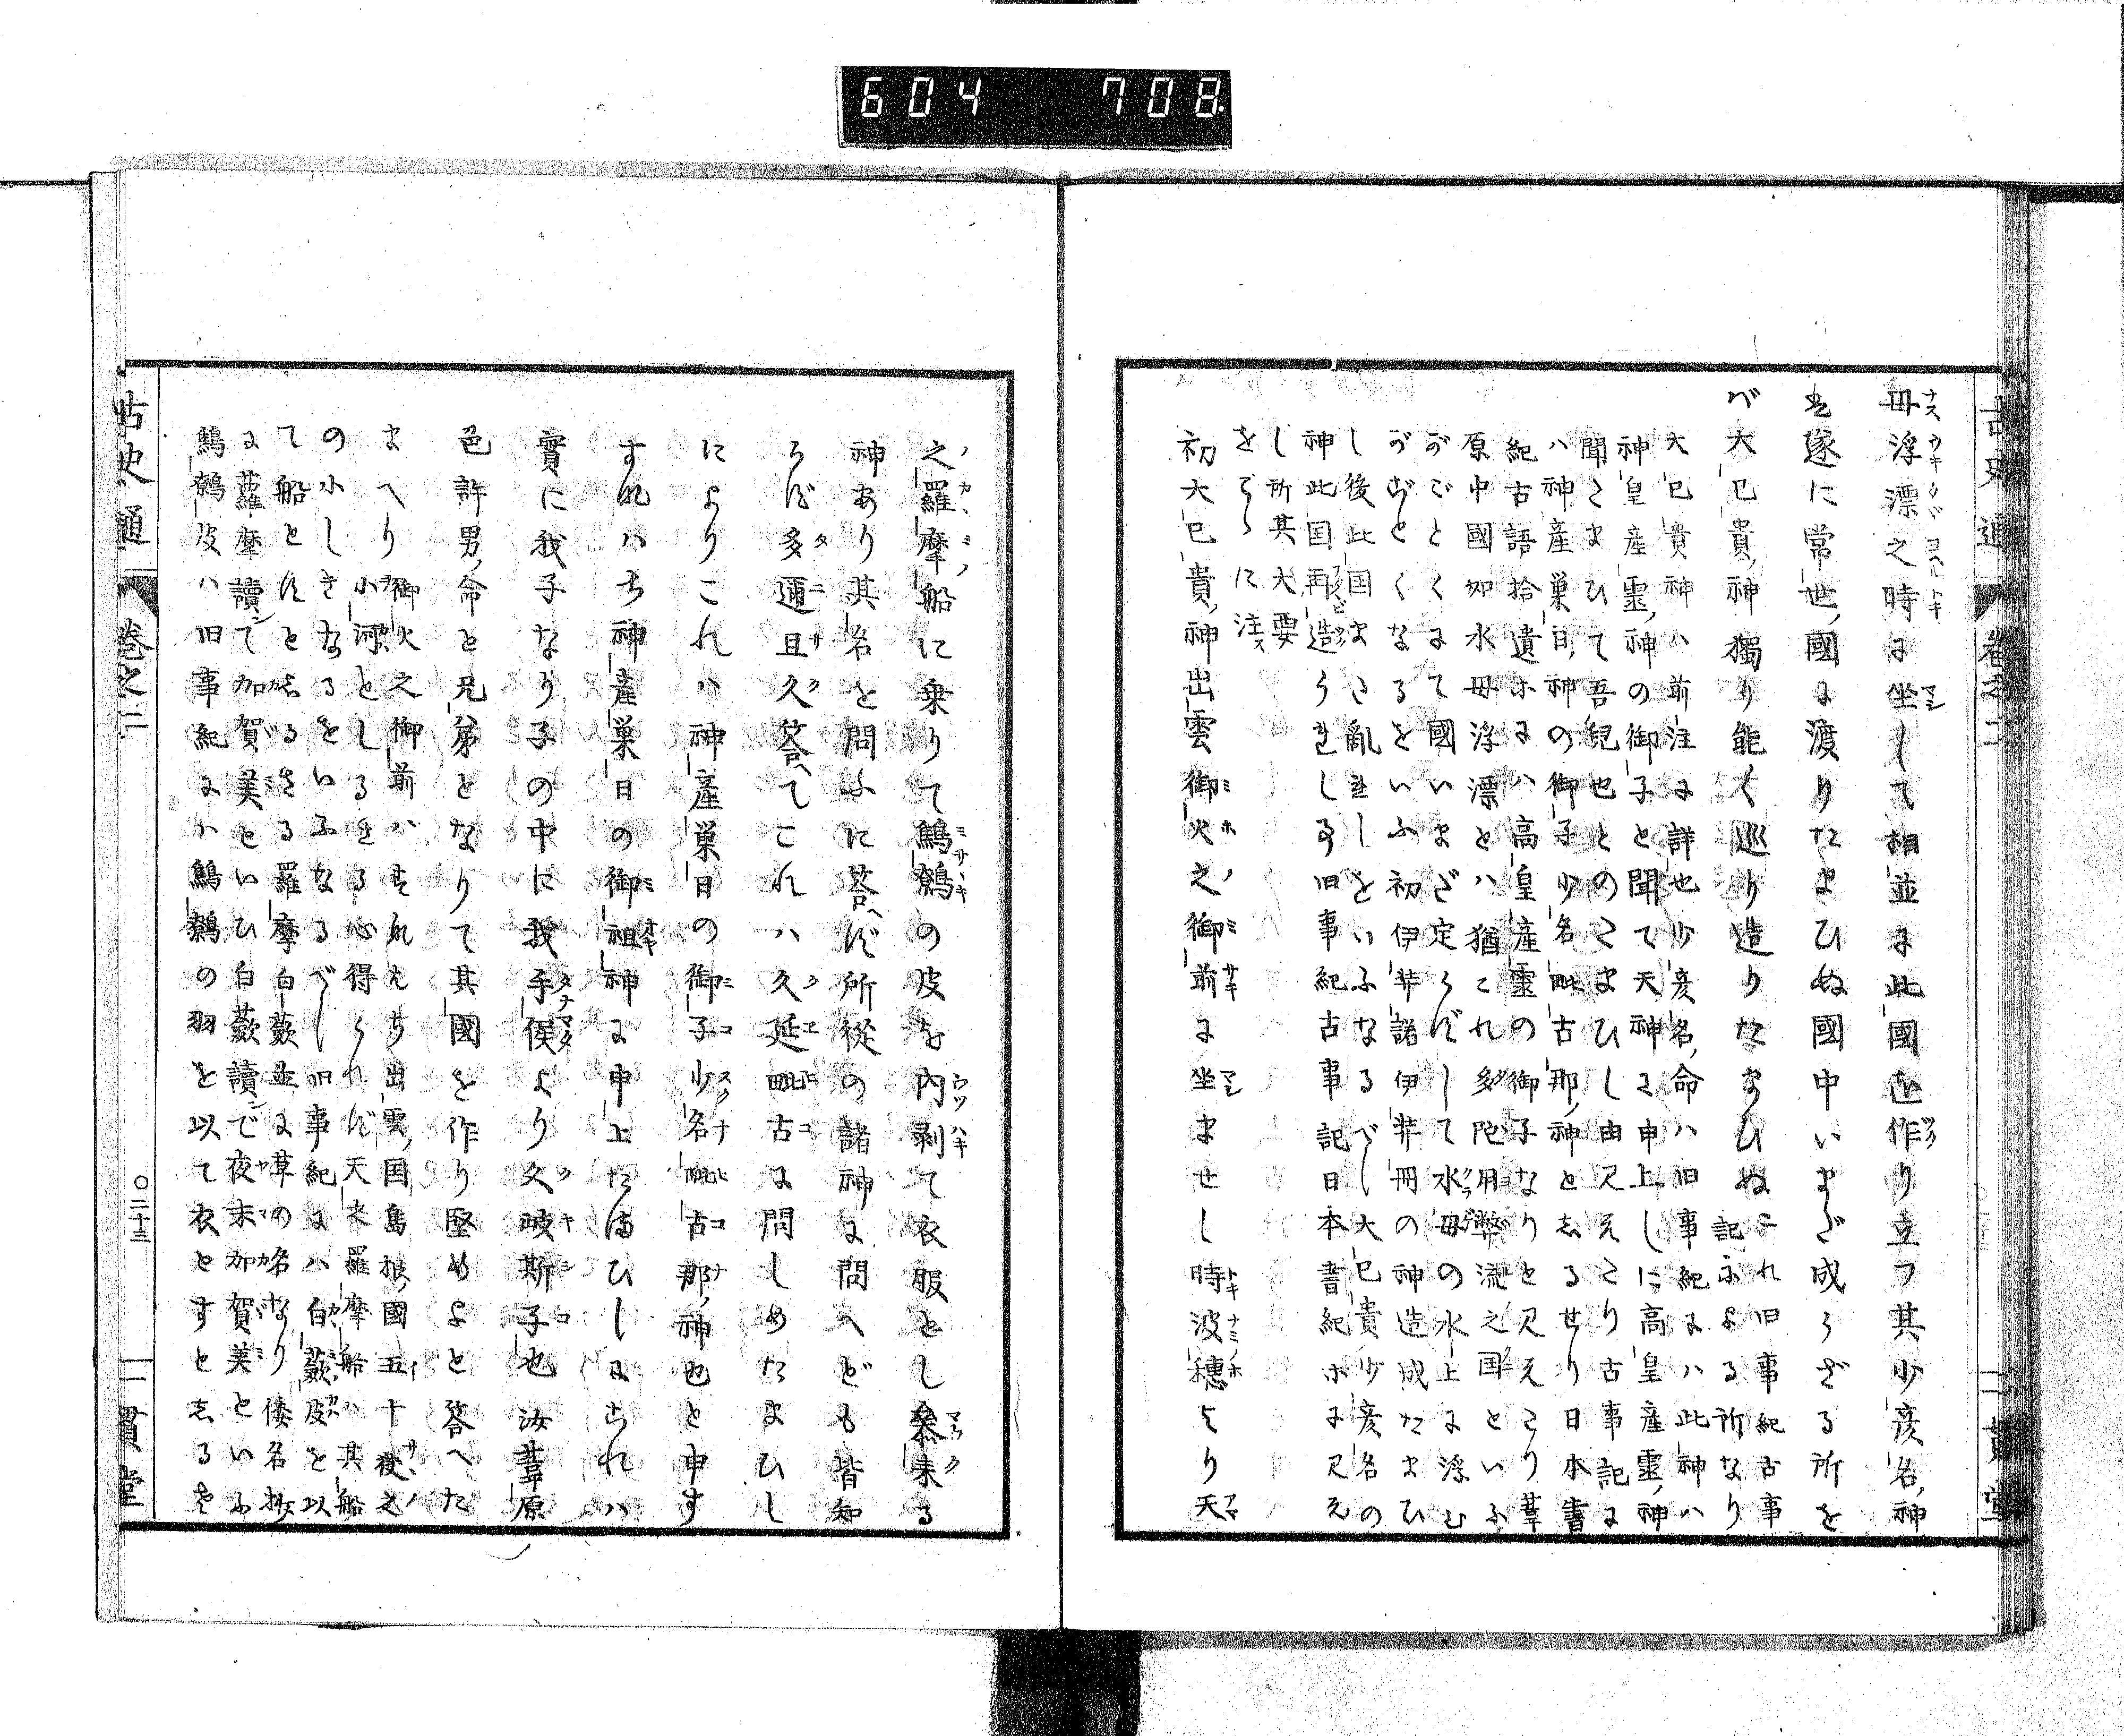 604 708
古史通 巻之二 一貫堂
毋浮漂之時に坐して相並に此國を作り立つ其少彦名神
は遂に常世國に渡りたまひぬ國中いまだ成らざる所を
バ大已貴神獨り能く巡り造りたまひぬ
これ旧事紀古事
記等による所なり
大已貴神ハ前注に詳也少彦名命ハ旧事紀にハ此神ハ
神皇産霊神の御子と聞て天神に申上しに高皇産霊神
聞こまひて吾兒也とのこまひし由見えこり古事記に
ハ神産巣日神の御子少名毗古那神としるせり日本書
紀古語拾遺等にハ高皇産霊の御子なりと見えこり葦
原中國如水毋浮漂とハ猶これ多陀用幣流之国といふ
がごとくにて國いまだ定らずして水毋の水上に浮む
がごとくなるといふ初伊弉諾伊弉冊の神造成たまひ
し後此国また亂れしをいふなるべし大已貴少彦名の
神此国再造られし事旧事紀古事記日本書紀等に見え
し所其大要
をこゝに注ス
初大已貴神出雲御火之御前に坐ませし時波穗より天
之羅摩船に乗りて鷦鷯の皮を内剥て衣服とし叅来る
神あり其名を問ふに答へず所從の諸神に問へども皆知
らず多邇且久答へてこれハ久延毗古に問しめたまひし
によりこれハ神産巣日の御子少名毗古那神也と申す
すれハち神産巣日の御祖神に申上たまひしにこれハ
實に我子なり子の中に我手俣より久岐斯子也汝葦原
色許男命と兄弟となりて其國を作り堅めよと答へた
まへり
御火之御前ハすれえち出雲国島根國五十狹之
小河としるせる心得られず天之羅摩船ハ其船
の小しきなるをいふなるべし旧事紀にハ白蘞皮を以
て船とすとしるせる羅摩白蘞並に草の名なり倭名抄
に蘿摩讀て加賀美といひ白蘞讀で夜末加賀美といふ
鷦鷯皮ハ旧事紀にハ鷦鷯の羽を以て衣とすとしるせ
古史通 巻之二 〇二十三 一貫堂